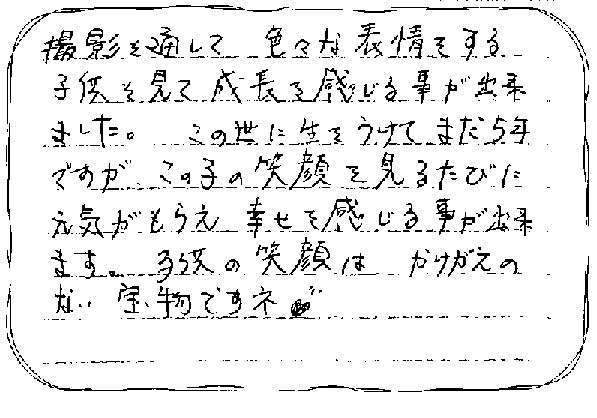 撮影を通して 色々な表情をする
子供を見て成長を感じる事が出来
ました。 この世に生をうけてまだ5年
ですが、この子の笑顔を見るたびに
元気がもらえ 幸せを感じる事が出来
ます。 子供の笑顔は かけがえの
ない宝物ですネ